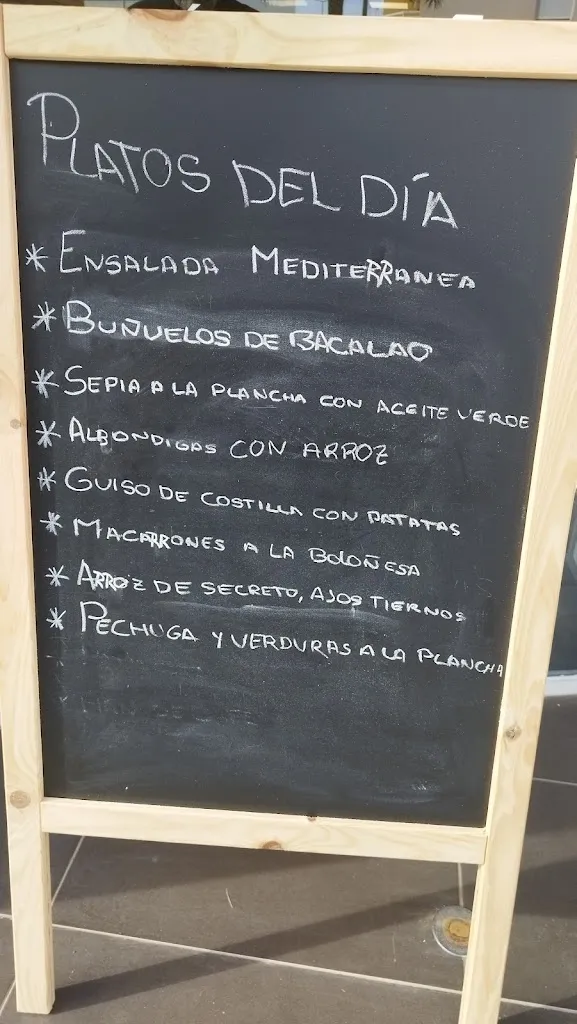 PLATOS DEL DÍA
* ENSALADA MEDITERRANEA
* BUÑUELOS DE BACALAO
* SEPIA A LA PLANCHA CON ACEITE VERDE
* ALBONDIGAS CON ARROZ
* GUISO DE COSTILLA CON PATATAS
* MACARRONES A LA BOLOÑESA
* ARROZ DE SECRETO, AJOS TIERNOS
* PECHUGA Y VERDURAS A LA PLANCHA